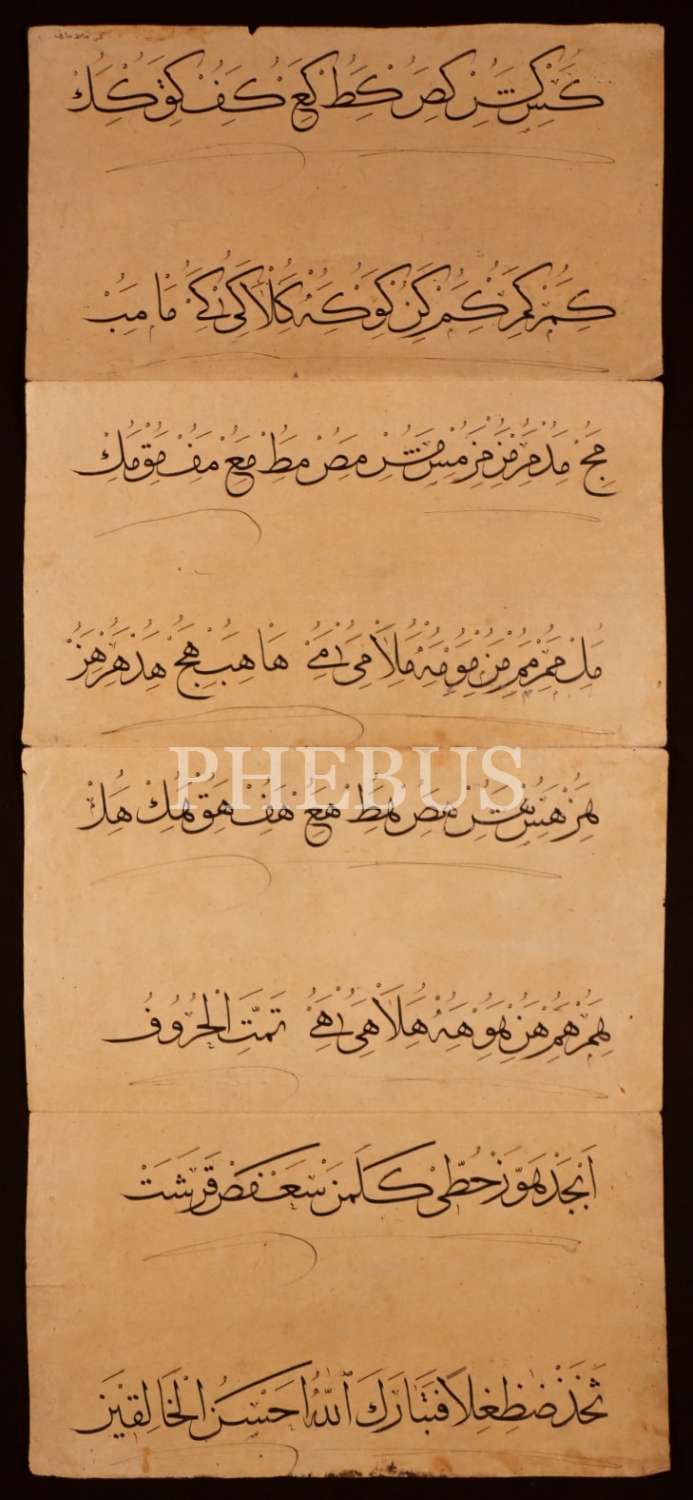 كس كش كص كط كع كف كق كك
كم كم كم كن كو كه كلا كى كے ما مب
مج مد مر مز مز مس مش مص مط مع مف مق مك
مل مم مم من مو مه ملا مى مے ها هب هج هد هر هز
PHEBUS
هز هس هش هص هط هع هف هق هك هل
هم هم هن هو هه هلا هى هے تَمَّتِ الْحُرُوفُ
اَبْجَدْ هَوَّزْ حُطِّى كَلَمَنْ سَعَفَصْ قَرَشَتْ
ثَخَذْ ضَظِغِلاَ فَتَبَارَكَ اللّٰهُ اَحْسَنُ الْخَالِقِينَ